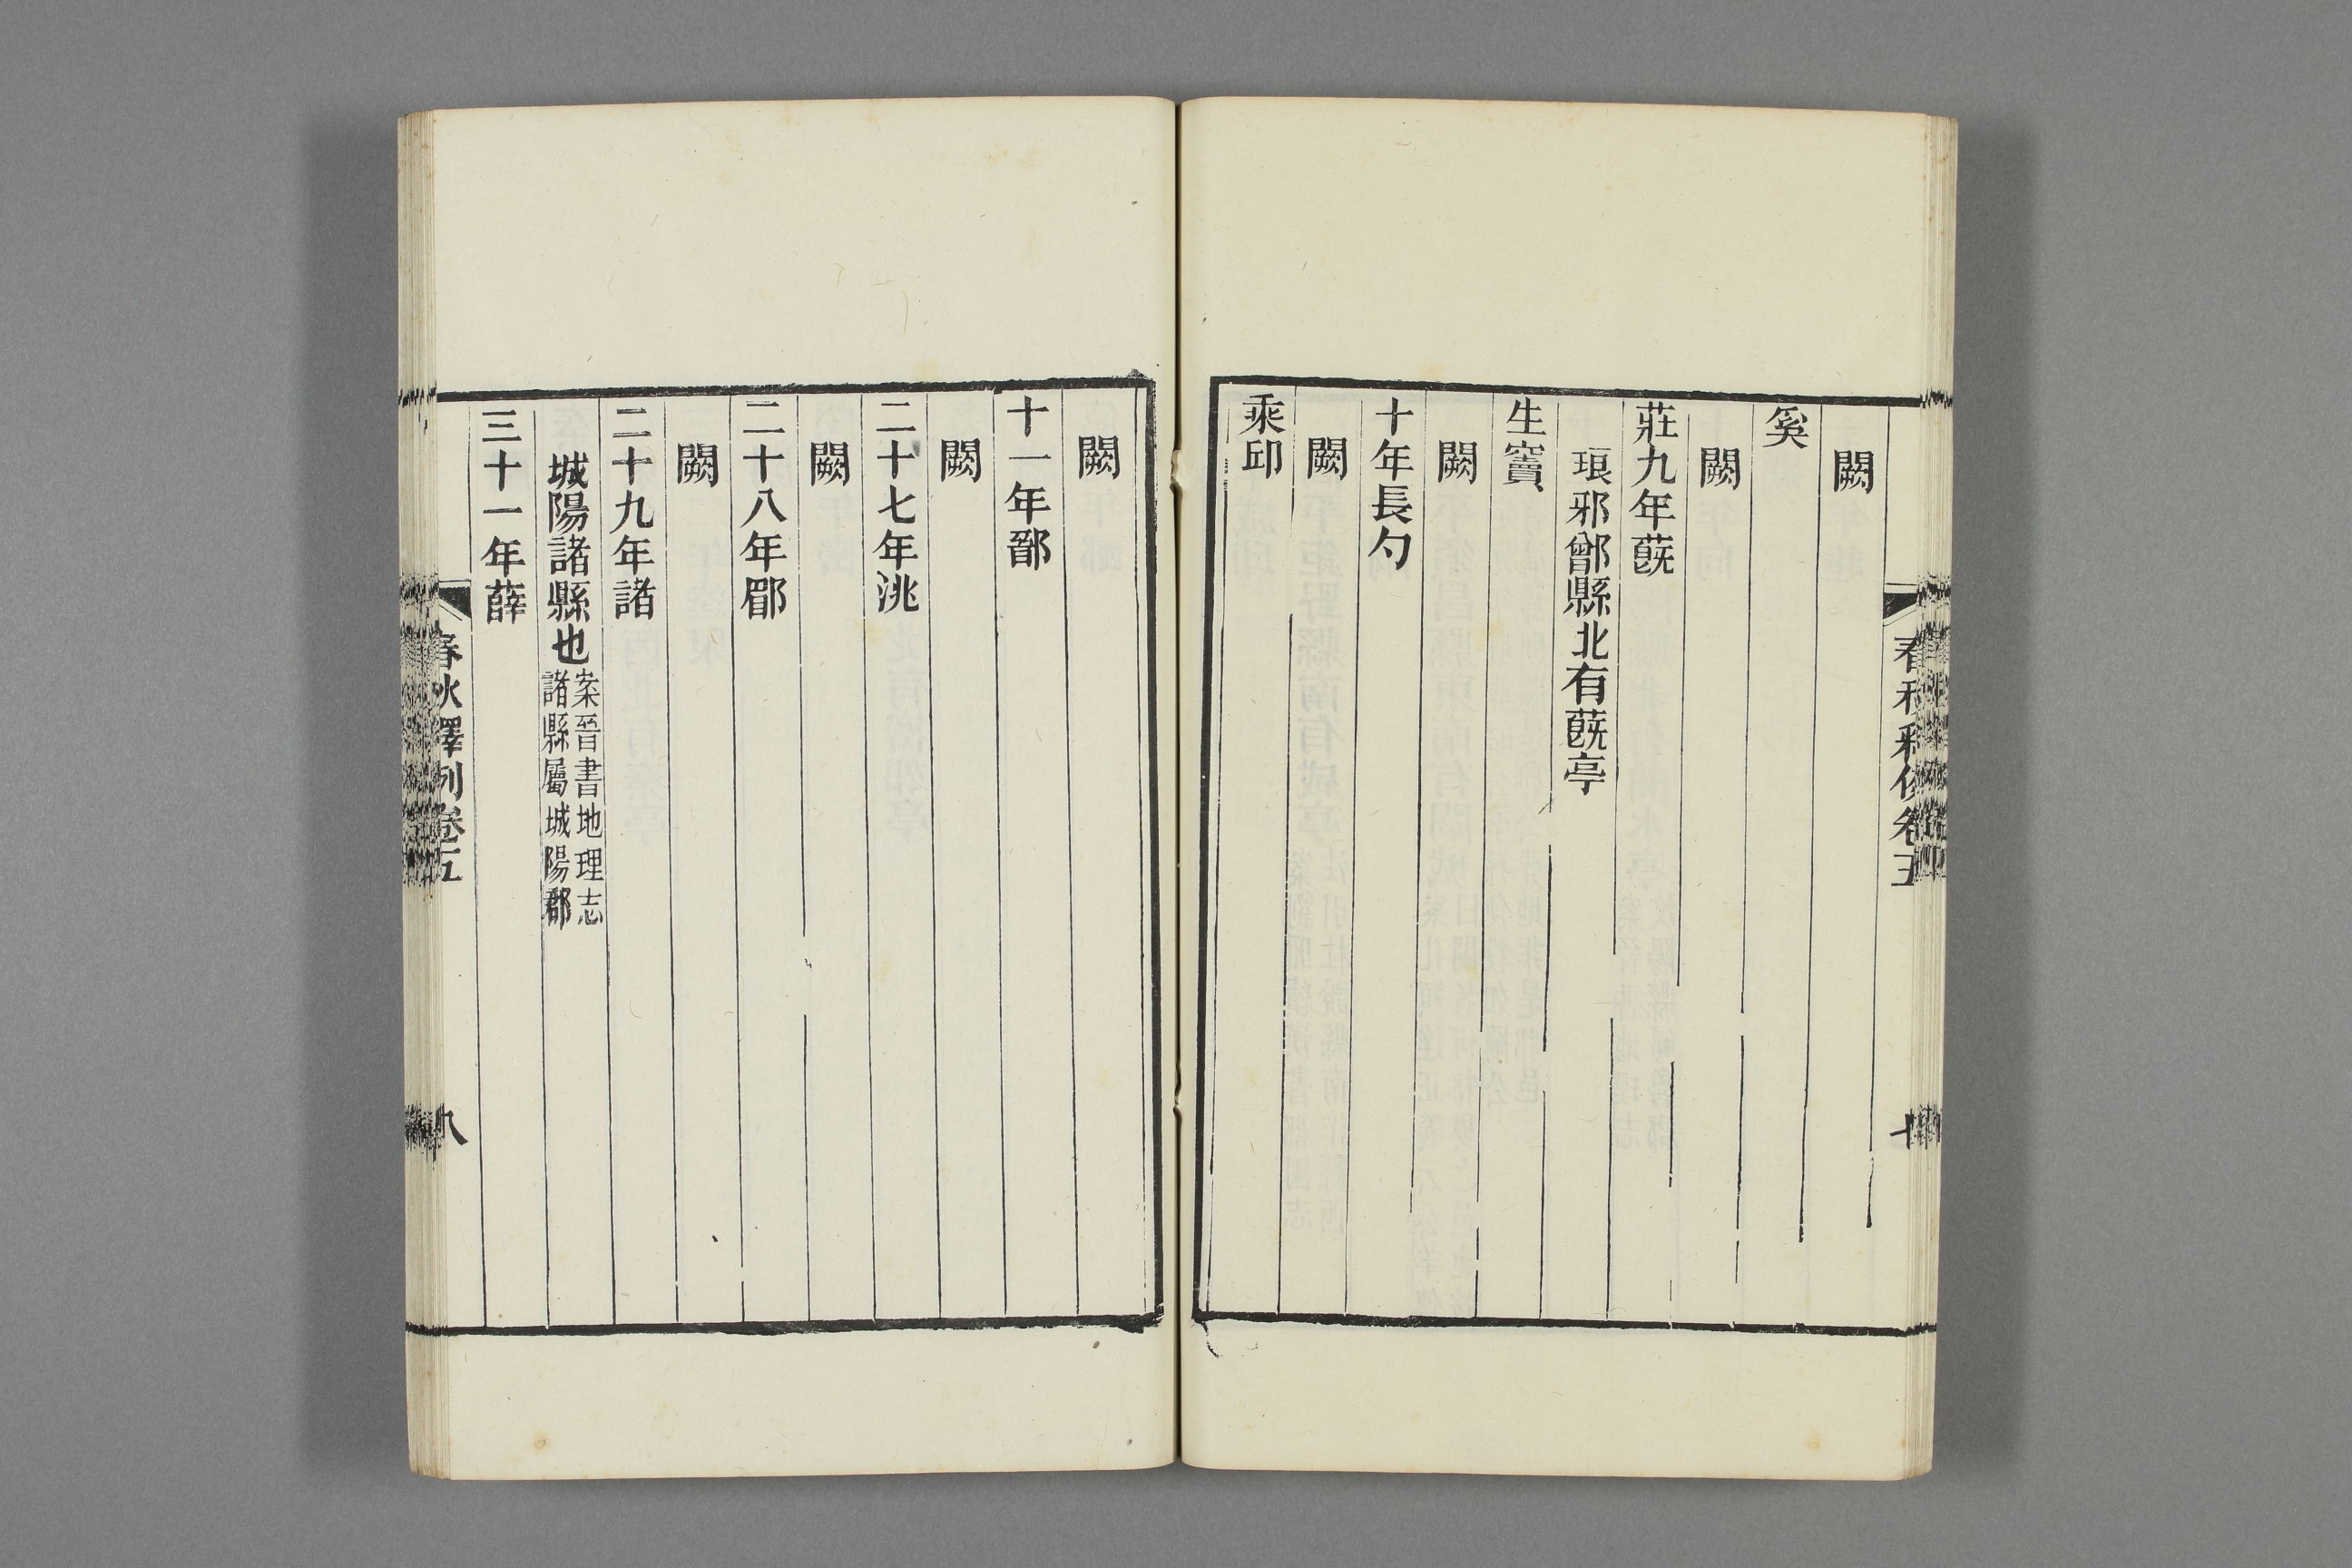 闕
奚
闕
莊九年蔇
琅邪鄫縣北有蔇亭
生竇
闕
十年長勺
闕
乘邱
闕
十一年鄑
闕
二十七年洮
闕
二十八年郿
闕
二十九年諸
城陽諸縣也案晉書地理志
諸縣屬城陽郡
三十一年薛
春秋釋例卷五
八